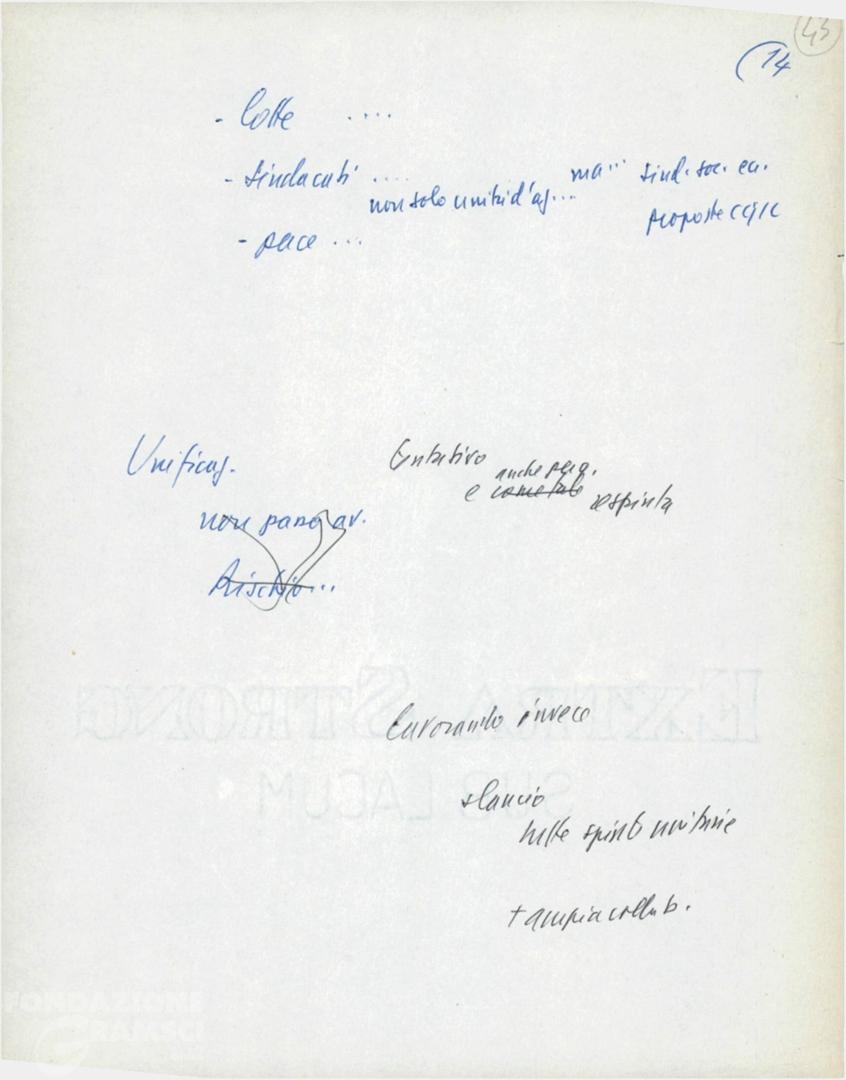 43
(14
- Lotte ....
- Sindacati .... ma... sind. soc. ec.
non solo unità d'az... proposte CGIL
- pace ...
Unificaz. Tentativo
anche per q.
e come tale respinta
non passo av.
Rischio...
EXTRA STRONG
Lavorando invece
SUB LACUM
slancio
tutte spinte unitarie
+ ampia collab.
FONDAZIONE
GRAMSCI